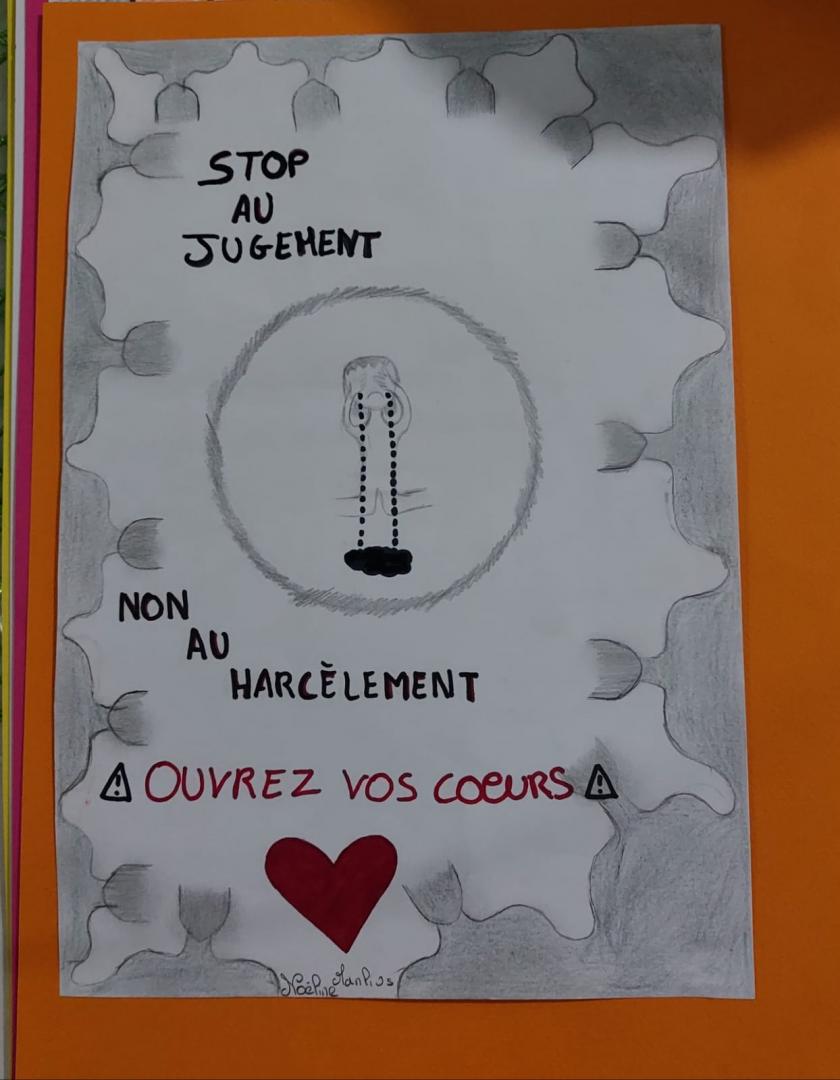 STOP
AU
JUGEMENT
NON
AU
HARCÈLEMENT
OUVREZ VOS COEURS
Noéline Manlius